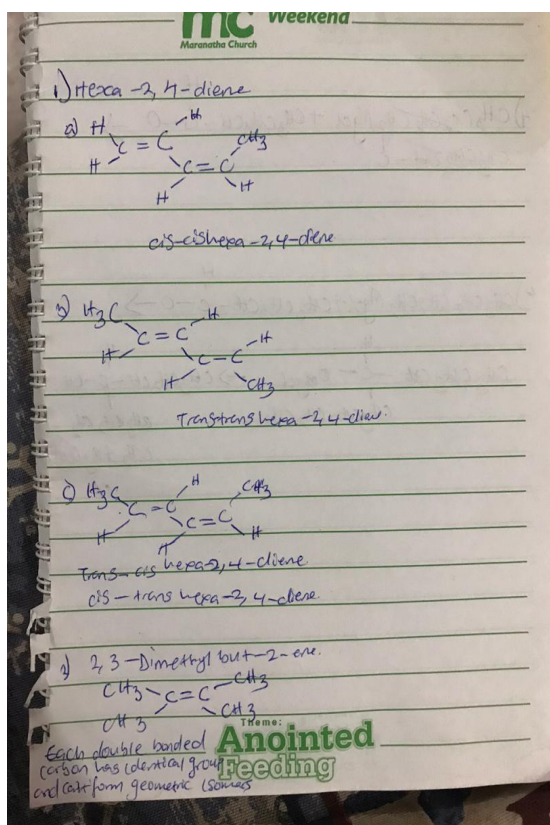 mc Weekend
Maranatha Church
1) Hexa-2,4-diene
a) H H
C = C CH3
H C = C
H H
cis-cishexa-2,4-diene
b) H3C H
C = C H
H C - C
H CH3
Transtrans hexa-2,4-dien.
c) H3C H CH3
C = C
H C = C
H H
Trans-cis hexa-2,4-diene
cis-trans hexa-2,4-diene.
2) 2,3-Dimethyl but-2-ene.
CH3 CH3
C = C
CH3 CH3
Theme:
Each double bonded Anointed
carbon has identical group Feeding
and can't form geometric isomers